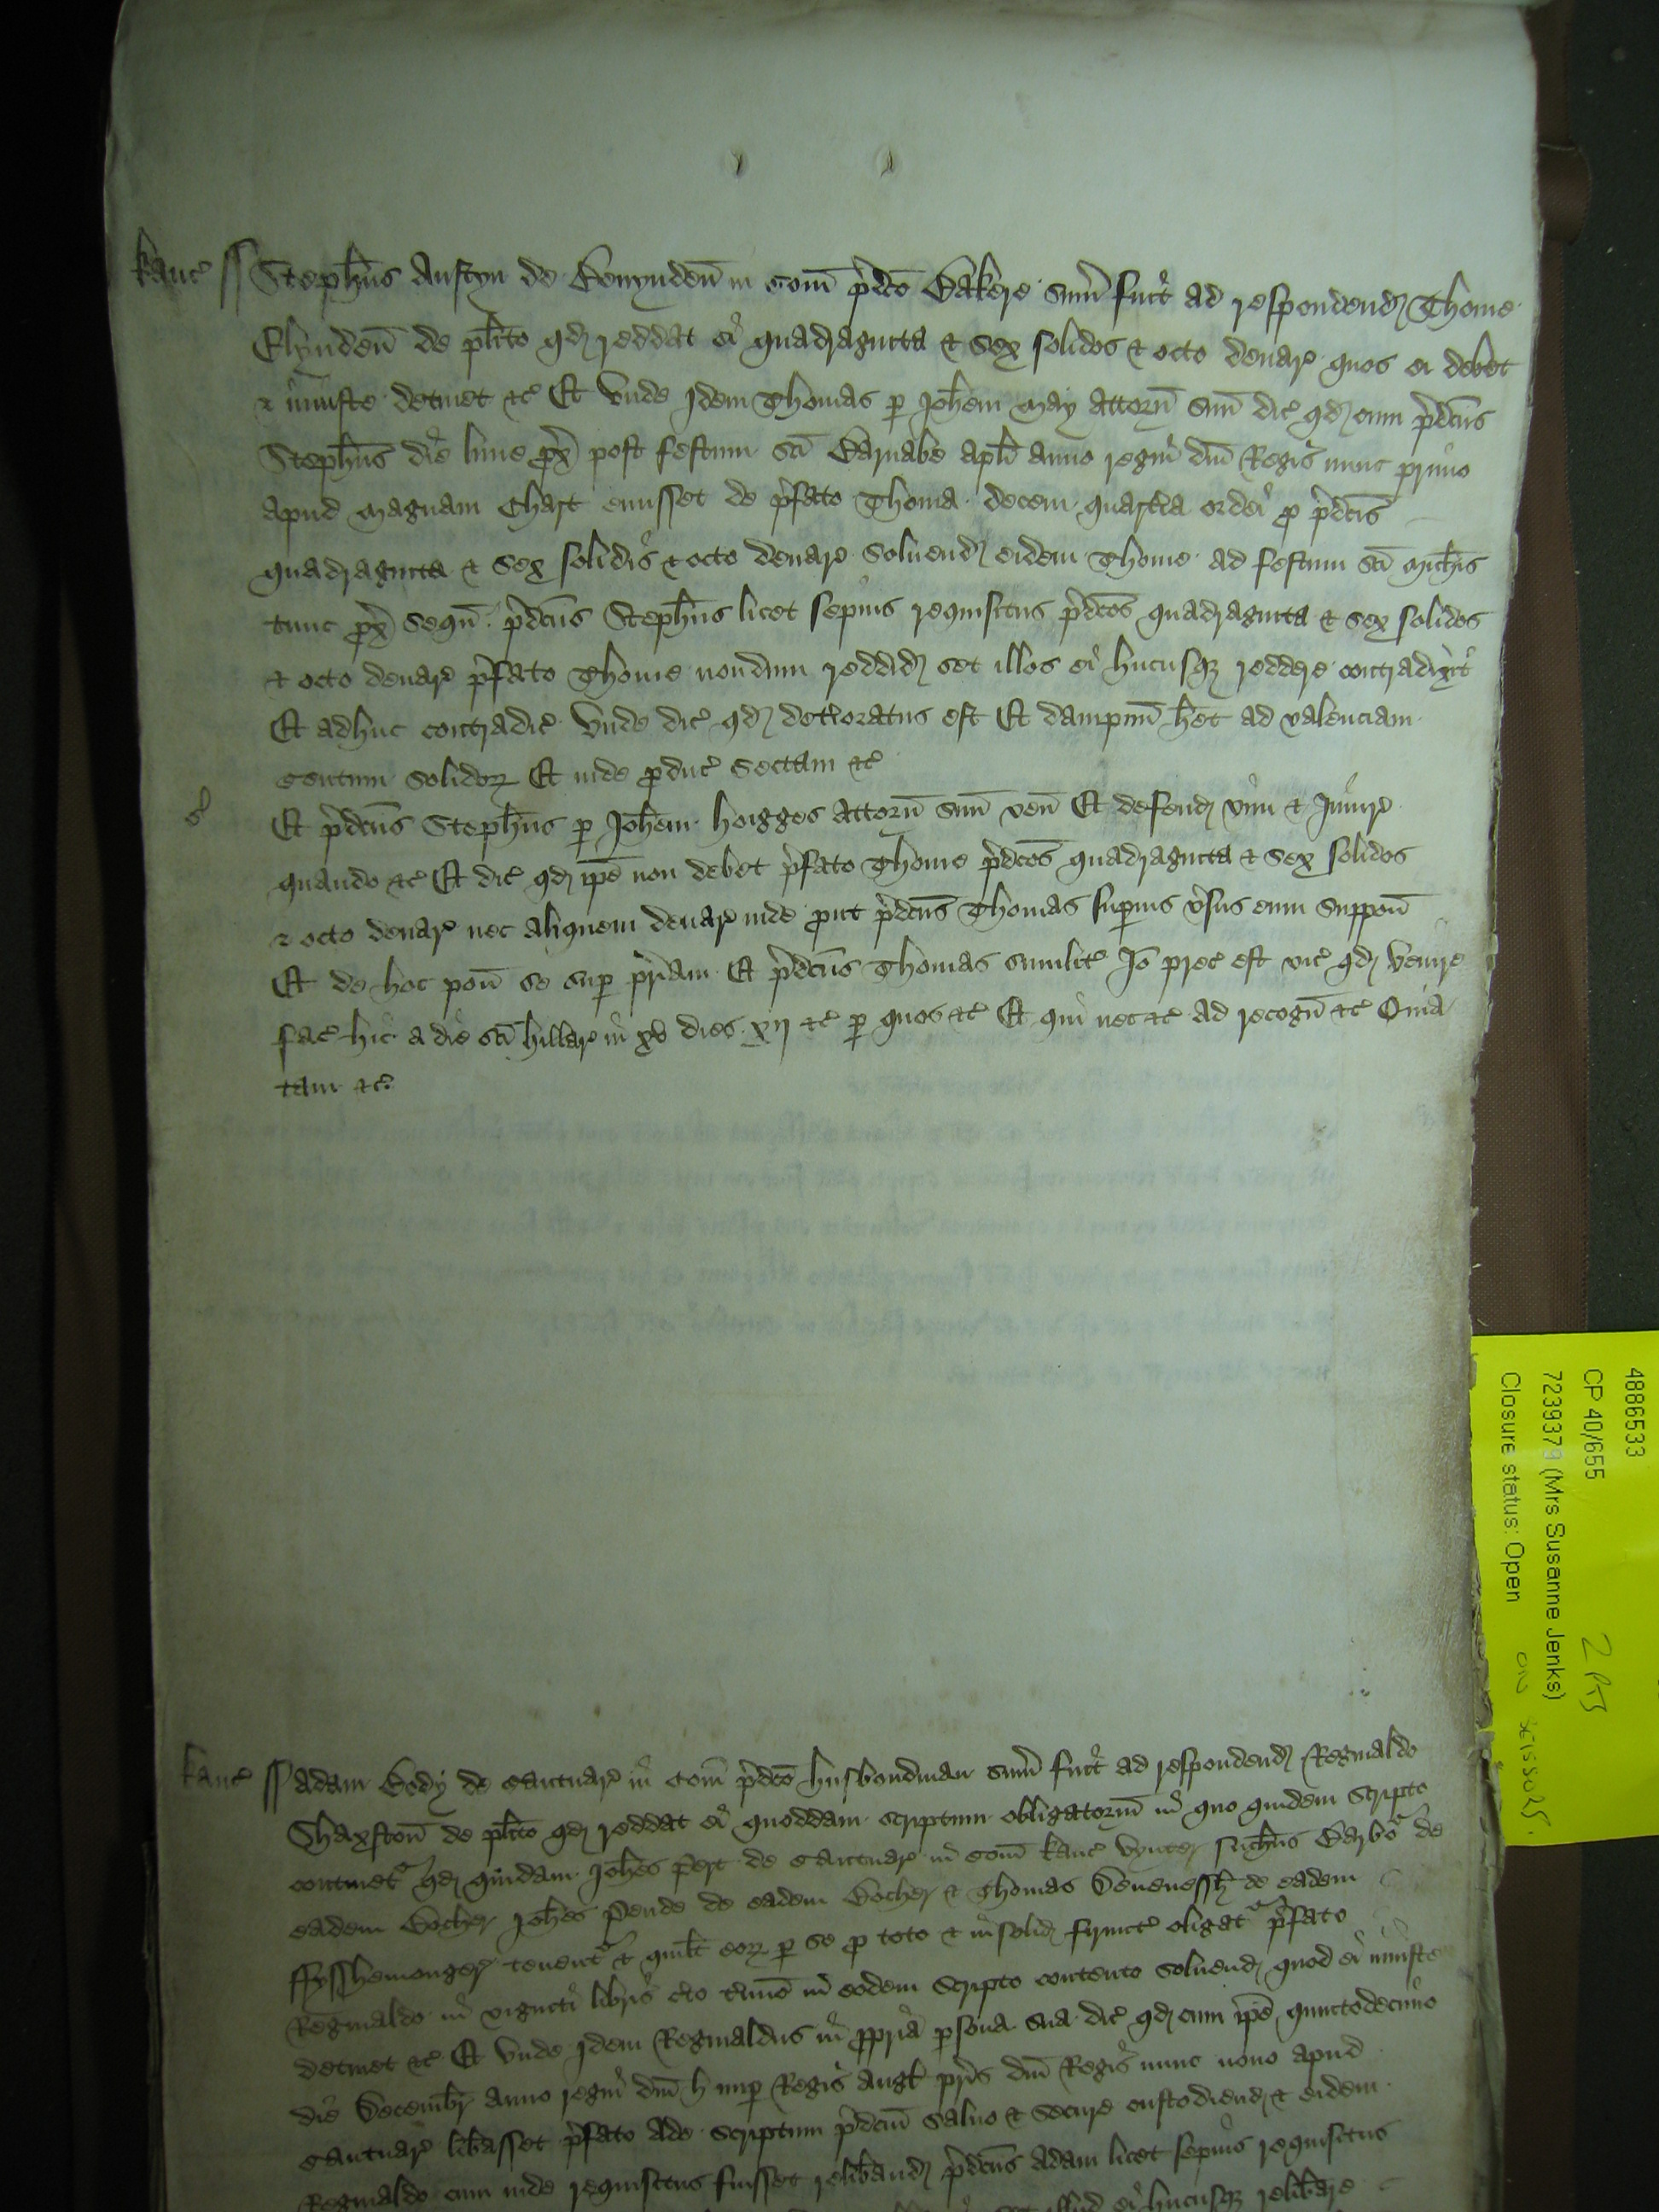 Kanc͛ ss Steph̄us Austyn de Benynden̄ in Com̄ p̄dc̄o Bakere sum̄ fuit ad respondend̛ Thome
Elynden̄ de pl̄ito qd̛ reddat ei quadraginta & sex solidos & octo denar͛ quos ei debet
& iniuste detinet &c͛ Et vnde Idem Thomas p̱ Joh̄em May Attorn̄ suū dic͛ qd̛ cum p̄dcūs
Steph̄us die lune px̄ post festum sc̄i Barnabe apl̄i anno regni dn̄i Regis nunc primo
apud magnam Chart emisset de p̄fato Thoma decem quart͛ia ordei ꝓ p̄dc̄is
quadraginta & sex solidis & octo denar͛ soluend̛ eidem Thome ad festum sc̄i Mich̄is
tunc px̄ sequn̄ p̄dcūs Steph̄us licet sepius requisitus p̄dc̄os quadraginta & sex solidos
& octo denar͛ p̄fato Thome nondum reddid̛ set illos ei hucusqꝫ redd͛e contradixit
Et adhuc contradic͛ Vnde dic͛ qd̛ det͛ioratus est Et dampnū h̄et ad valenciam
Centum solidoꝝ Et inde ꝓduc͛ sectam &c͛
Et p̄dcūs Steph̄us p̱ Joh̄em Hoigges Attorn̄ suū ven̄ Et defend̛ vim & Iniur͛
quando &c͛ Et dic͛ qd̛ ip̄e non debet p̄fato Thome p̄dc̄os quadraginta & sex solidos
& octo denar͛ nec aliquem denar͛ inde ꝓut p̄dcūs Thomas sup̱ius v͛sus eum suppon̄
Et de hoc pon̄ se sup̱ pr̄iam Et p̄dcūs Thomas similit͛ Iō prec͛ est vic͛ qd̛ venire
fac͛ hic a die sc̄i Hillar͛ in xv dies xij &c͛ p̱ quos &c͛ Et qui nec &c͛ Ad recogn̄ &c͛ Quia
tam &c͛
Kanc͛ ss Adam Body de Cantuar͛ in Com̄ p̄dc̄o husbondman sum̄ fuit ad respondend̛ Reginaldo
Shaxston̄ de pl̄ito qd̛ reddat ei quoddam scriptum obligatoriū in quo quidem scripto
continet͛ qd̛ quidam Joh̄es Pert de Cantuar͛ in Com̄ Kanc͛ Vynter Nich̄us Barbo͛ de
eadem Bocher Joh̄es Pende de eadem Bocher & Thomas Deueness̄h de eadem
ffysshemonger͛ tenent͛ & quil̄t eoꝝ p̱ se ꝓ toto & in solid̛ firmit͛ oligat͛ p̄fato
Reginaldo in viginti libris c͛to t͛mīo in eodem scripto contento soluend̛ quod ei iniuste
detinet &c͛ Et vnde Idem Reginaldus in ꝓpria p̱sona sua dic͛ qd̛ cum ip̄e quintodecimo
die Decembr͛ anno regni dn̄i H nup̱ Regis Angl̄ pr̄is dn̄i Regis nunc nono apud
Cantuar͛ lib̄asset p̄fato Ade scriptum p̄dcm̄ saluo & secure custodiend̛ & eidem
Reginaldo cum inde requisitus fuisset relib̄and̛ p̄dcūs Adam licet sepius requisitus
illud ei hucusqꝫ relib̄are
4886533
CP 40/655
7239379 (Mrs Susanne Jenks)
Closure status: Open